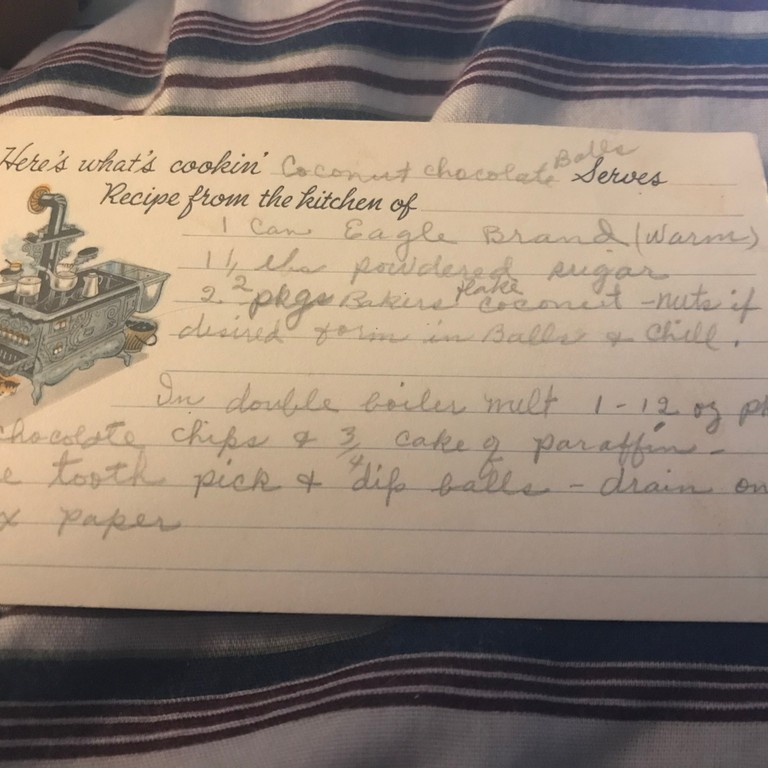 Here's what's cookin' Coconut chocolate Balls Serves
Recipe from the kitchen of
1 Can Eagle Brand (Warm)
1 lbs powdered sugar
2 2 pkgs Bakers flake coconut - nuts if
desired form in Balls & Chill.
In double boiler melt 1 - 12 oz pk
chocolate chips & 3/4 cake of paraffin -
e tooth pick & dip balls - drain on
x paper